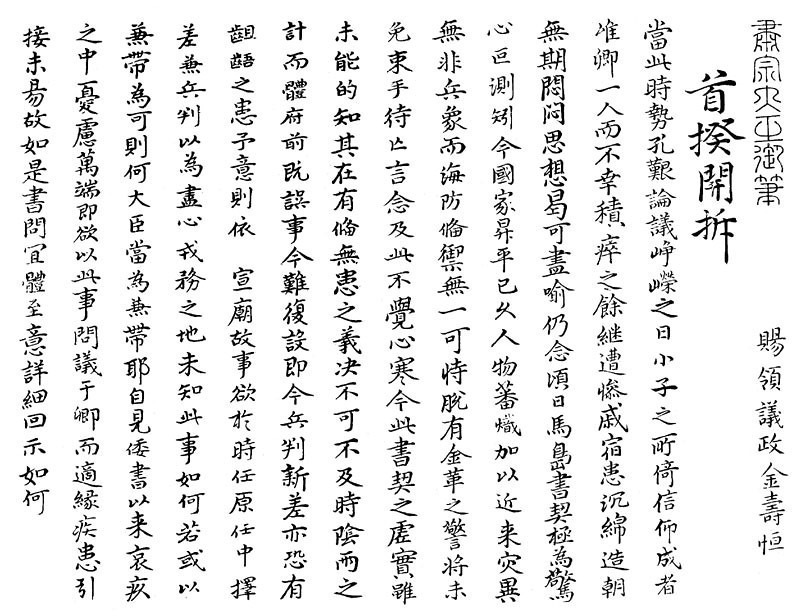 肅宗大王御筆
賜領議政金壽恒
首揆開拆
當此時勢孔艱論議崢嶸之日小子之所倚信仰成者
唯卿一人而不幸積瘁之餘継遭慘戚宿患沉綿造朝
無期悶悶思想曷可盡喻仍念頃日馬島書契極為驚
心叵測矧今國家昇平已久人物蕃熾加以近来灾異
無非兵象而海防俻禦無一可恃脫有金革之警将未
免束手待亡言念及此不覺心寒今此書契之虛實雖
未能的知其在有俻無患之義决不可不及時陰雨之
計而體府前既誤事今難復設即今兵判新差亦恐有
齟齬之患予意則依 宣廟故事欲於時任原任中擇
差兼兵判以為盡心戎務之地未知此事如何若或以
兼帶為可則何大臣當為兼帶耶自見倭書以来哀疚
之中憂慮萬端即欲以此事問議于卿而適縁疾患引
接未易故如是書問冝體至意詳細回示如何